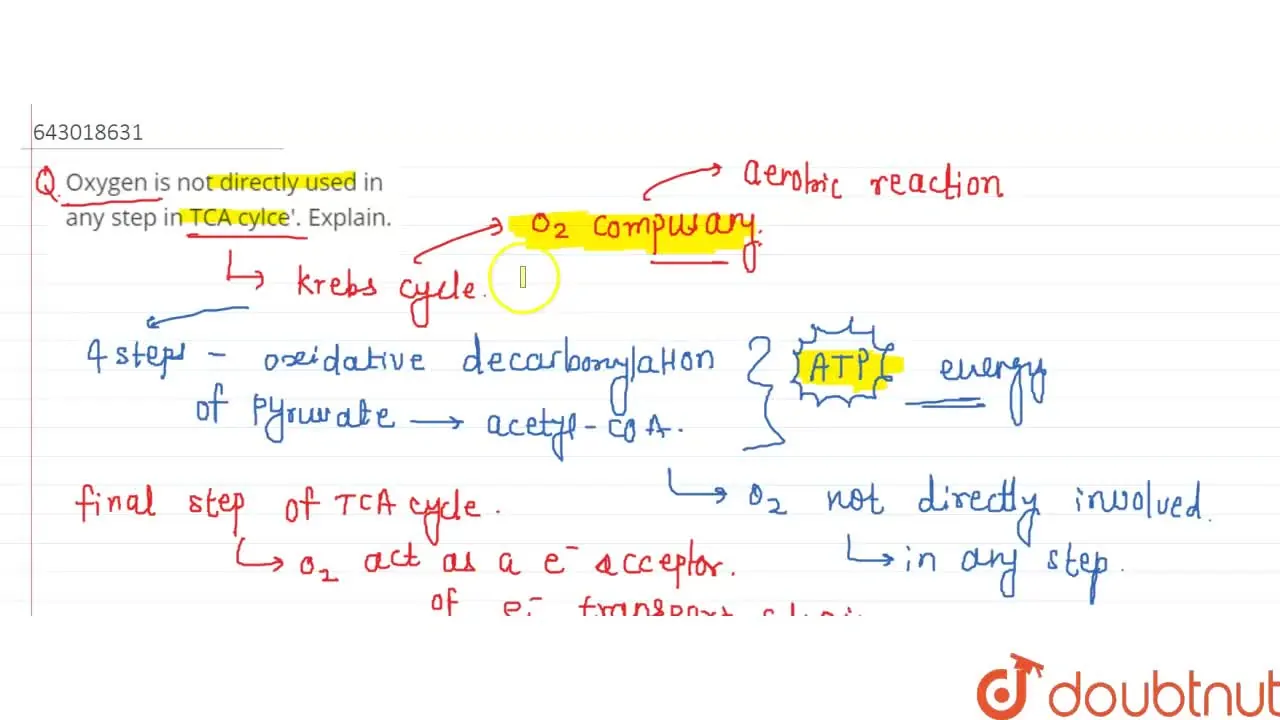 643018631
Q. Oxygen is not directly used in
any step in TCA cylce'. Explain.
aerobic reaction
O2 compusary.
Krebs cycle.
4 steps - oxidative decarbonylation
of Pyruvate → acetyl-COA.
ATP energy
O2 not directly involved.
in any step.
final step of TCA cycle.
O2 act as a e- acceptor.
of e- transport chain
doubtnut